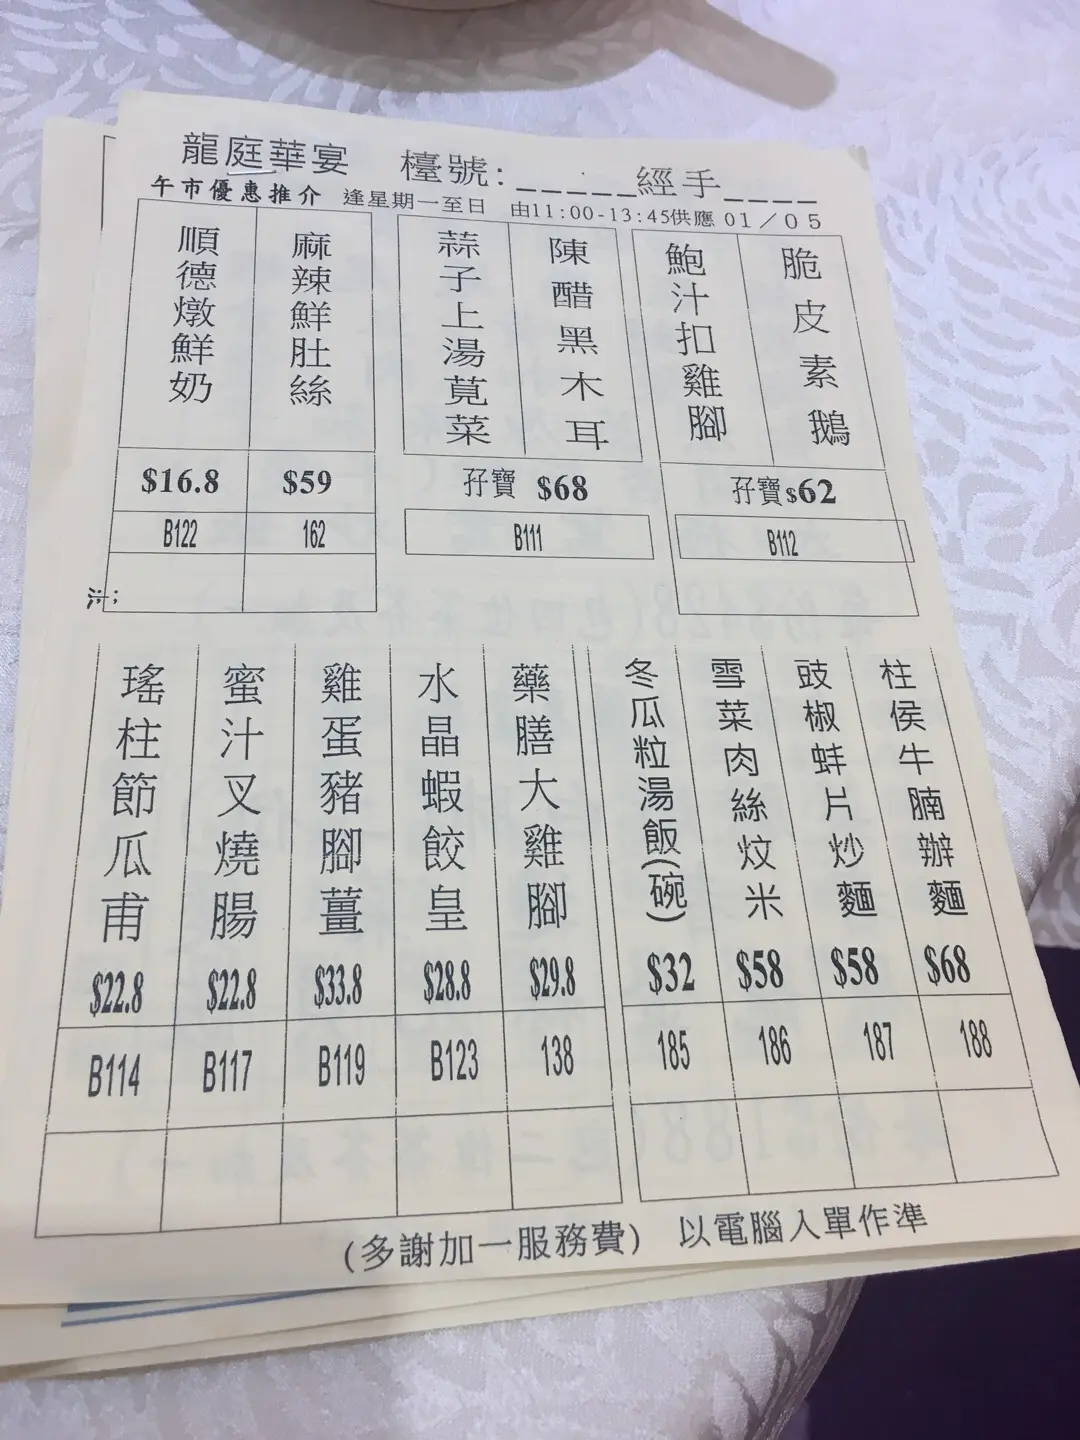 龍庭華宴 檯號:_____經手____
午市優惠推介 逢星期一至日 由11:00-13:45供應 01/05
順德燉鮮奶
麻辣鮮肚絲
蒜子上湯莧菜
陳醋黑木耳
鮑汁扣雞腳
脆皮素鵝
$16.8 $59 孖寶 $68 孖寶$62
B122 162 B111 B112
瑤柱節瓜甫
蜜汁叉燒腸
雞蛋豬腳薑
水晶蝦餃皇
藥膳大雞腳
冬瓜粒湯飯(碗)
雪菜肉絲炆米
豉椒蚌片炒麵
柱侯牛腩辦麵
$22.8 $22.8 $33.8 $28.8 $29.8 $32 $58 $58 $68
B114 B117 B119 B123 138 185 186 187 188
(多謝加一服務費) 以電腦入單作準